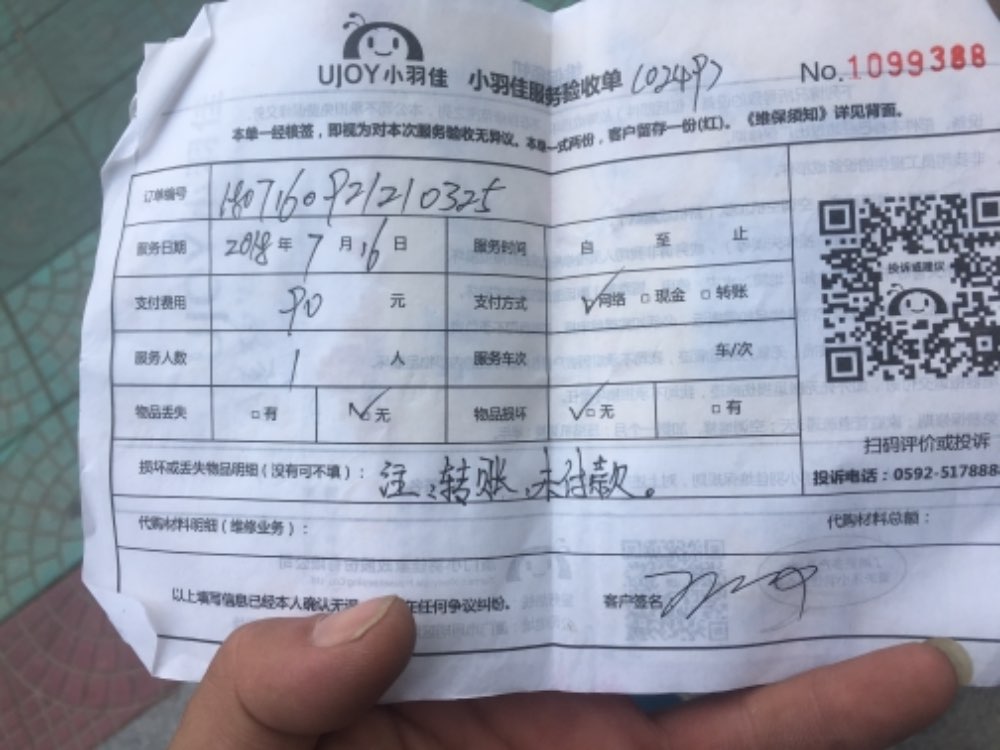 UJOY小羽佳 小羽佳服务验收单 No.1099388
本单一经核签，即视为对本次服务验收无异议。本单一式两份，客户留存一份(红)。《维保须知》详见背面。
订单编号 1807160921210325
服务日期 2018年7月16日 服务时间 自 至 止
支付费用 90 元 支付方式 ☑网络 □现金 □转账
服务人数 1 人 服务车次 车/次
物品丢失 □有 ☑无 物品损坏 ☑无 □有
投诉或建议
扫码评价或投诉
损坏或丢失物品明细（没有可不填）：注、转账、未付款。
投诉电话：0592-517888
代购材料明细（维修业务）： 代购材料总额：
以上填写信息已经本人确认无误 在任何争议纠纷。 客户签名